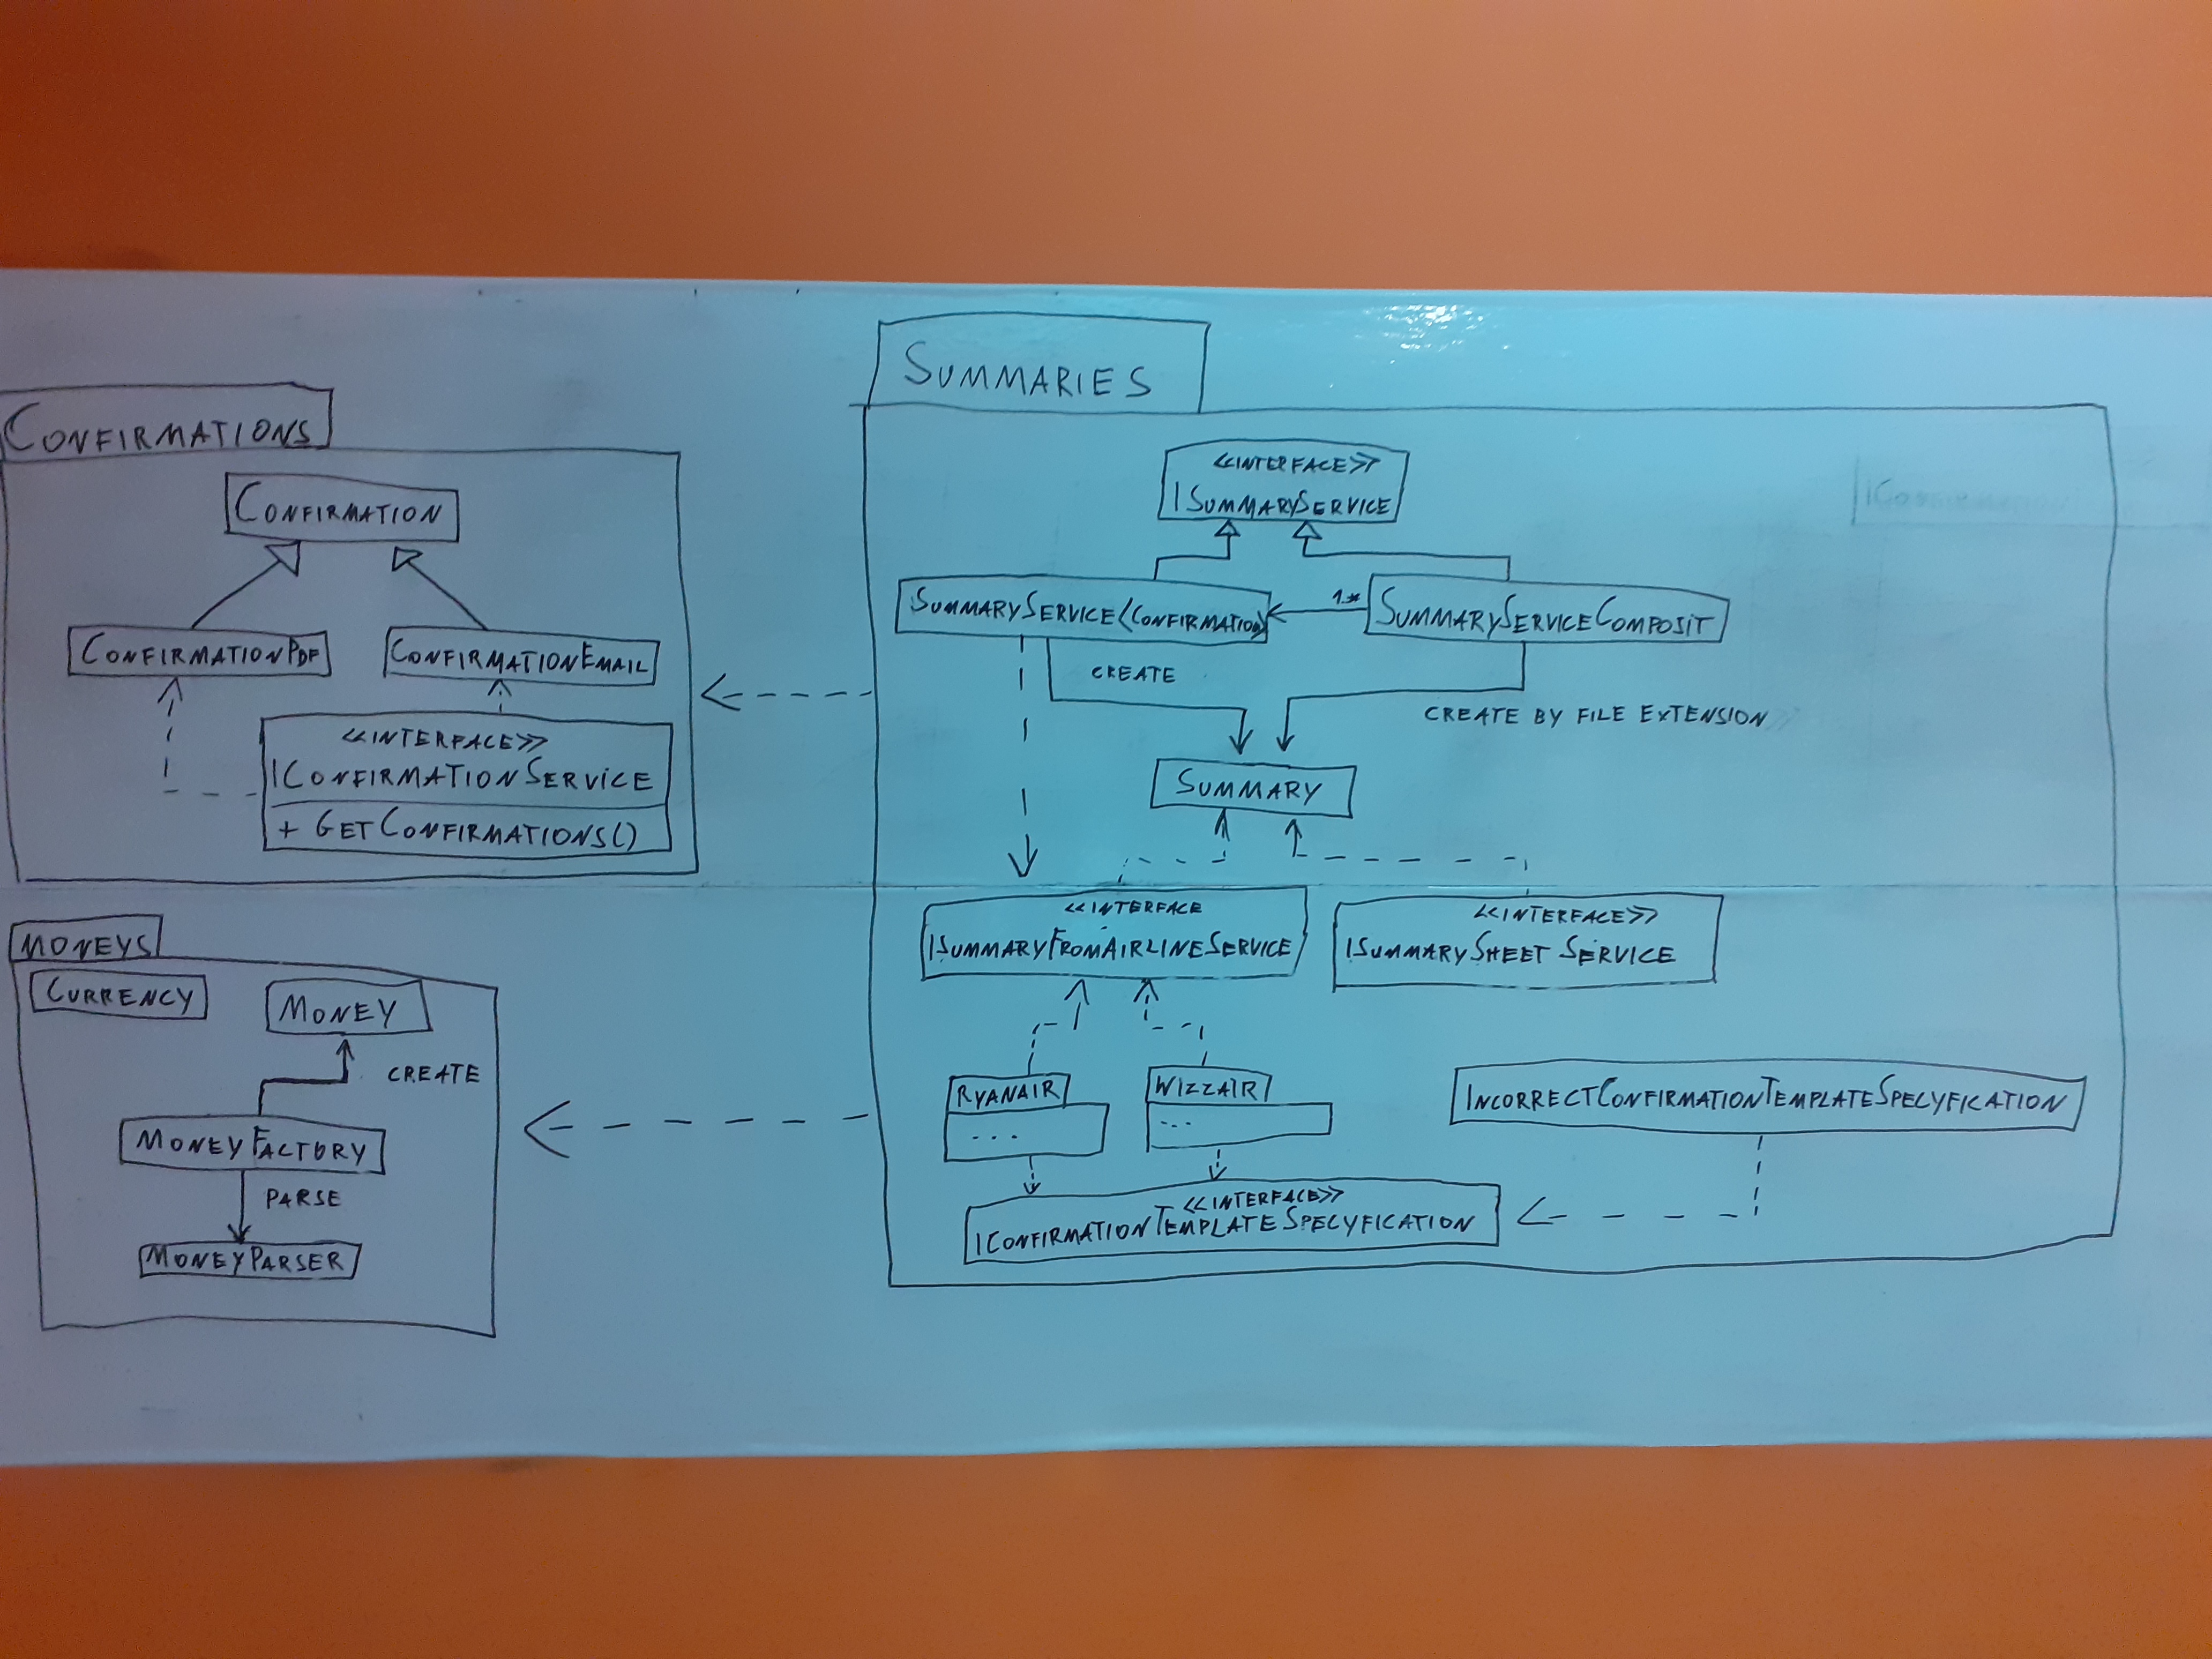 SUMMARIES
CONFIRMATIONS
CONFIRMATION
CONFIRMATIONPDF
CONFIRMATIONEMAIL
<<INTERFACE>>
ICONFIRMATIONSERVICE
+ GETCONFIRMATIONS()
MONEYS
CURRENCY
MONEY
CREATE
MONEYFACTORY
PARSE
MONEYPARSER
<<INTERFACE>>
ISUMMARYSERVICE
SUMMARYSERVICE<CONFIRMATION>
1..*
SUMMARYSERVICECOMPOSIT
CREATE
CREATE BY FILE EXTENSION
SUMMARY
<<INTERFACE
ISUMMARYFROMAIRLINESERVICE
<<INTERFACE>>
ISUMMARYSHEET SERVICE
RYANAIR
...
WIZZAIR
...
INCORRECTCONFIRMATIONTEMPLATESPECYFICATION
<<INTERFACE>>
ICONFIRMATIONTEMPLATESPECYFICATION